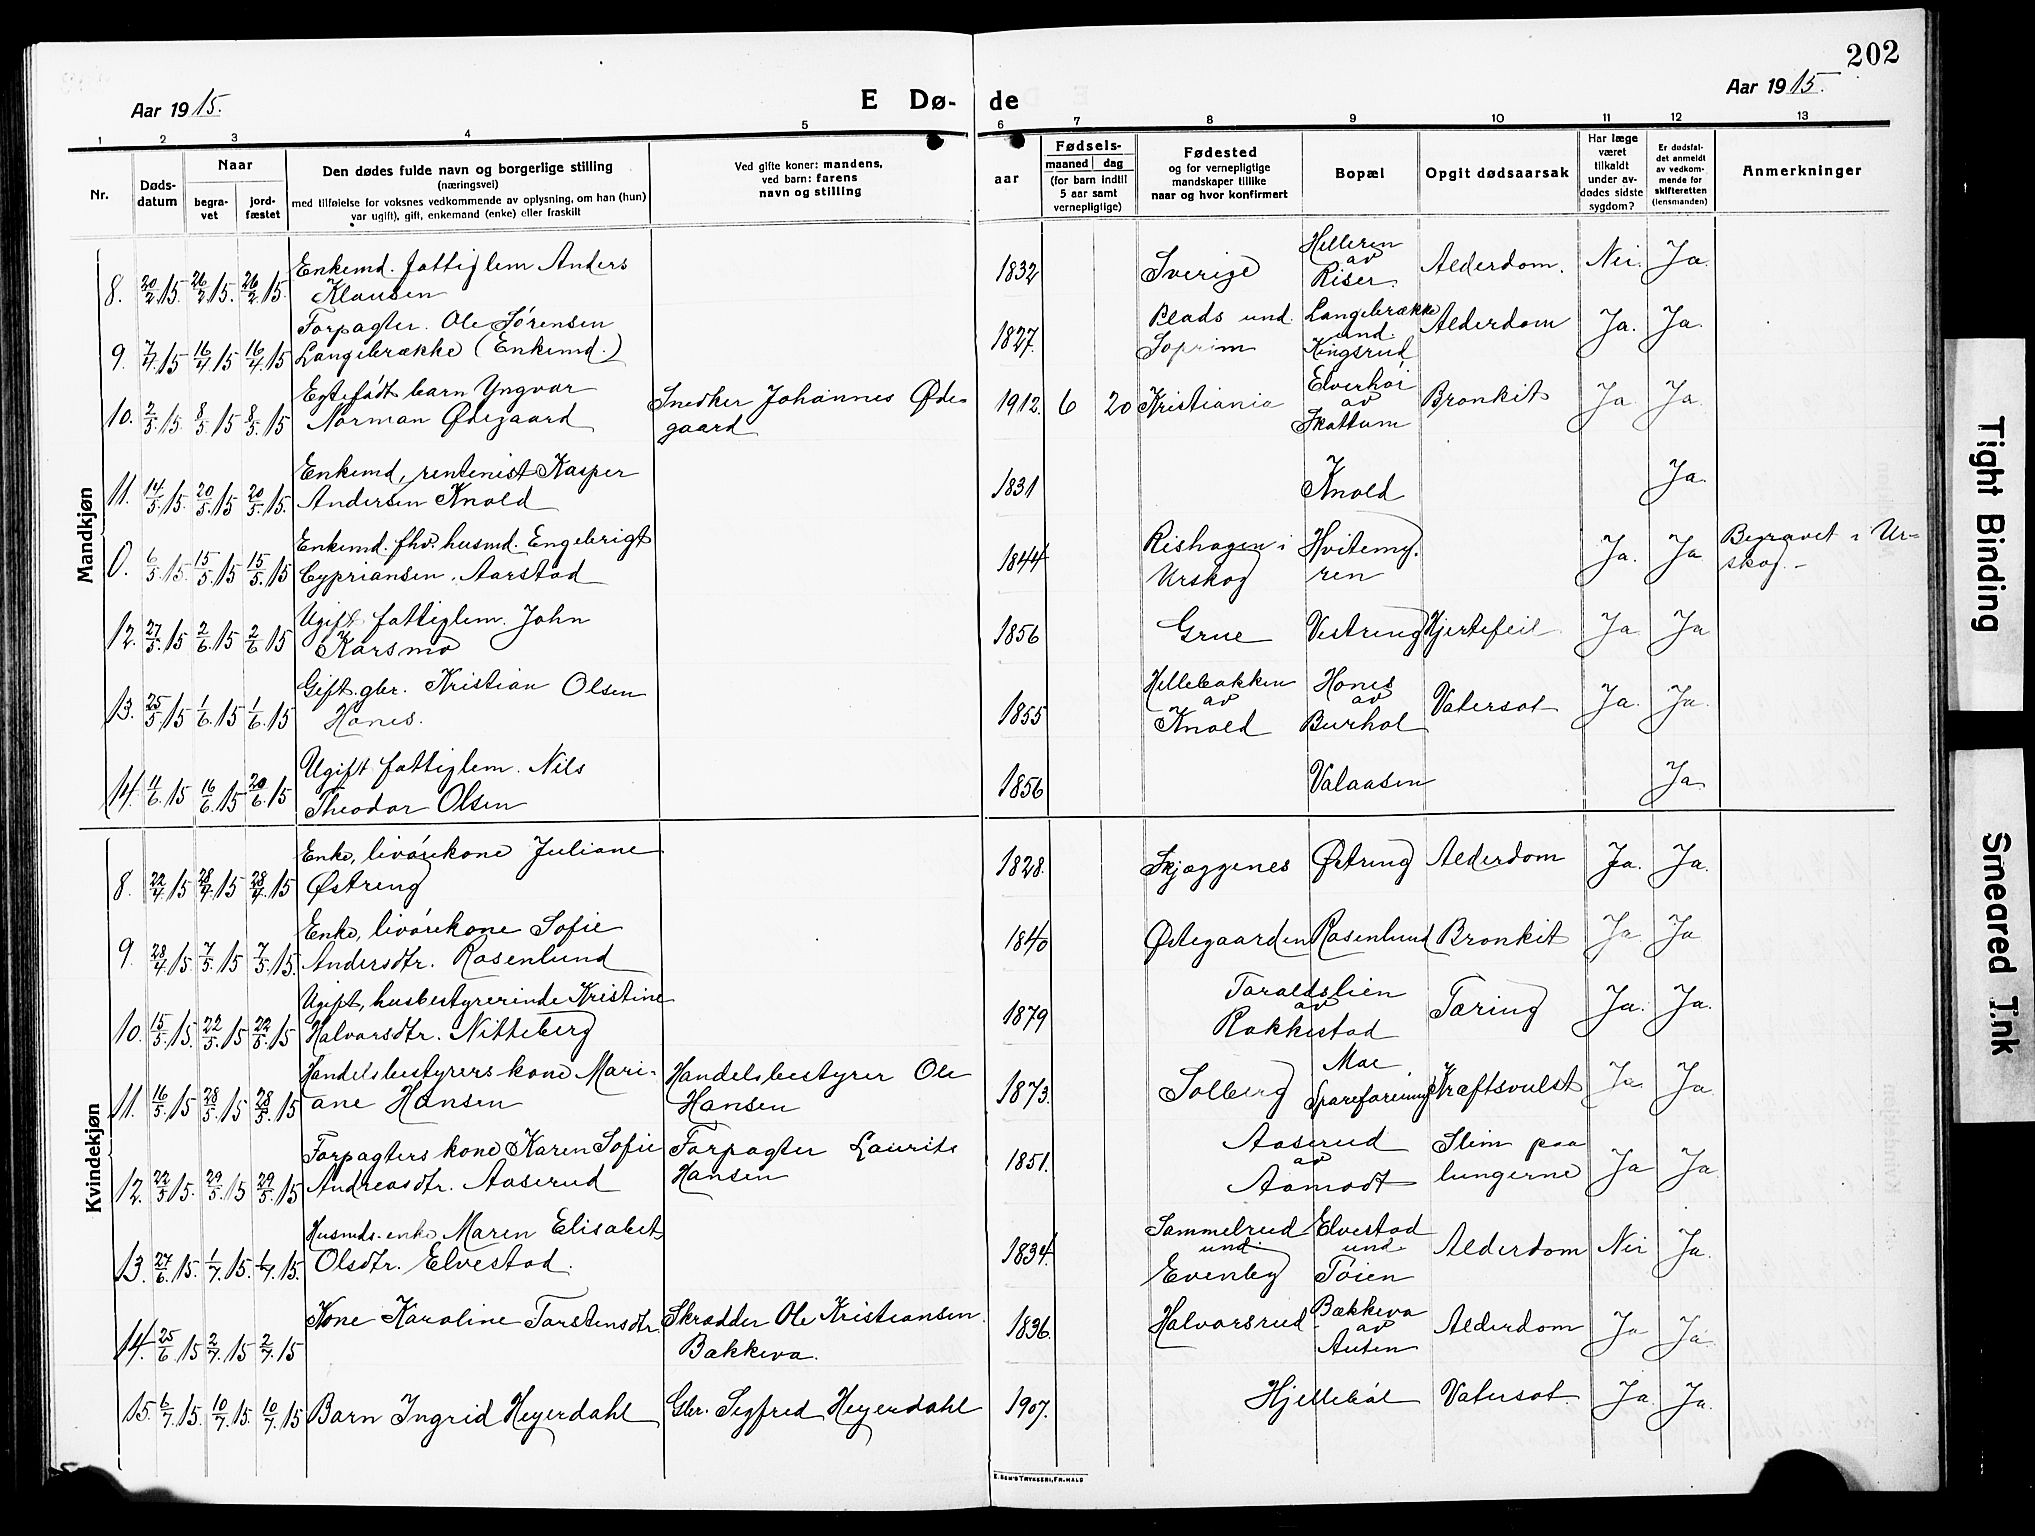 202
Aar 1915.
E Dø-
de
Aar 1915.
1 2 3 4 5 6 7 8 9 10 11 12 13
Nr.
Døds-
datum
Naar
begra-
vet
jord-
fæstet
Den dødes fulde navn og borgerlige stilling
(næringsvei)
med tilføielse for voksnes vedkommende av oplysning, om han (hun)
var ugift), gift, enkemand (enke) eller fraskilt
Ved gifte koner: mandens,
ved barn: farens
navn og stilling
aar
Fødsels-
maaned dag
(for barn indtil
5 aar samt
vernepligtige)
Fødested
og for vernepligtige
mandskaper tillike
naar og hvor konfirmert
Bopæl
Opgit dødsaarsak
Har læge
været
tilkaldt
under av-
dødes sidste
sygdom?
Er dødsfal-
det anmeldt
av vedkom-
mende for
skifteretten
(lensmanden)
Anmerkninger
Mandkjøn
8. 20/2 15. 26/2 15. 26/2 15. Enkemd. fattiglem Anders
Klausen
1832 Sverige
Helleren
av
Riser.
Alderdom. Nei. Ja.
9. 7/4 15 16/4 15 16/4 15 Forpagter. Ole Sørensen
Langebrække (Enkemd.)
1827. Plads und.
Soprim
Langebrække
und.
Kingsrud
Alderdom Ja. Ja.
10. 2/5 15. 8/5 15 8/5 15 Egtefødt barn Yngvar
Norman Ødegaard
Snedker Johannes Øde-
gaard
1912. 6 20 Kristiania
Elverhøi
av
Skattum
Bronkit Ja Ja.
11. 14/5 15. 20/5 15 20/5 15. Enkemd, rentenist Kasper
Andersen Knold
1831 Knold Ja.
0. 6/5 15. 15/5 15 15/5 15 Enkemd. fhv. husmd. Engebrigt
Cypriansen. Aarstad
1844 Rishagen i
Urskog
Hvitemy-
ren
Ja. Ja
Begravet i Ur-
skog.-
12. 27/5 15 2/6 15 2/6 15 Ugift fattiglem. John
Karsmo
1856 Grue Vestreng Hjertefeil. Ja Ja
13. 25/5 15 1/6 15 1/6 15 Gift. gbr. Kristian Olsen
Hanes.
1855 Hellebakken
av
Knold
Hones
av
Burhol
Vatersot Ja. Ja.
14. 11/6 15 16/6 15 20/6 15 Ugift fattiglem. Nils
Theodor Olsen
1856 Valaasen Ja
Kvindekjøn
8. 22/4 15 28/4 15 28/4 15 Enke, livørekone Juliane
Østreng
1828. Skjøggenes Østreng Alderdom Ja. Ja.
9. 28/4 15 7/5 15 7/5 15. Enke, livørekone Sofie
Andersdtr. Rosenlund
1840 Østegaarden Rosenlund Bronkit Ja Ja
10. 15/5 15. 22/5 15 22/5 15 Ugift, husbestyrerinde Kristine
Halvorsdtr. Nitteberg
1879 Taraldslien
av
Rakkestad
Tæring Ja. Ja.
11. 16/5 15 28/5 15 28/5 15 Handelsbestyrers kone Mari-
ane Hansen
Handelsbestyrer Ole
Hansen
1873. Solberg
Mae
Spareforening
Kræftsvulst Ja Ja
12. 22/5 15. 29/5 15 29/5 15 Forpagters kone Karen Sofie
Andreasdtr. Aaserud
Forpagter Laurits
Hansen
1851. Aaserud
av
Aamodt
Slim paa
lungerne
Ja Ja
13. 27/6 15. 1/7 15. 1/7 15. Husmds. enke Maren Elisabet
Olsdtr. Elvestad.
1834. Sammelrud
und
Evenby
Elvestad
und.
Tøien
Alderdom Nei Ja.
14. 25/6 15 2/7 15 2/7 15 Kone Karoline Tarstensdtr.
Skrædder Ole Kristiansen
Bækkeva.
1836. Halvorsrud
Bækkeva
av
Auten
Alderdom Ja Ja
15. 6/7 15. 10/7 15. 10/7 15 Barn Ingrid Heyerdahl Gbr. Segfred Heyerdahl 1907. Hjellebøl Vatersot. Ja Ja.
Tight Binding
Smeared Ink